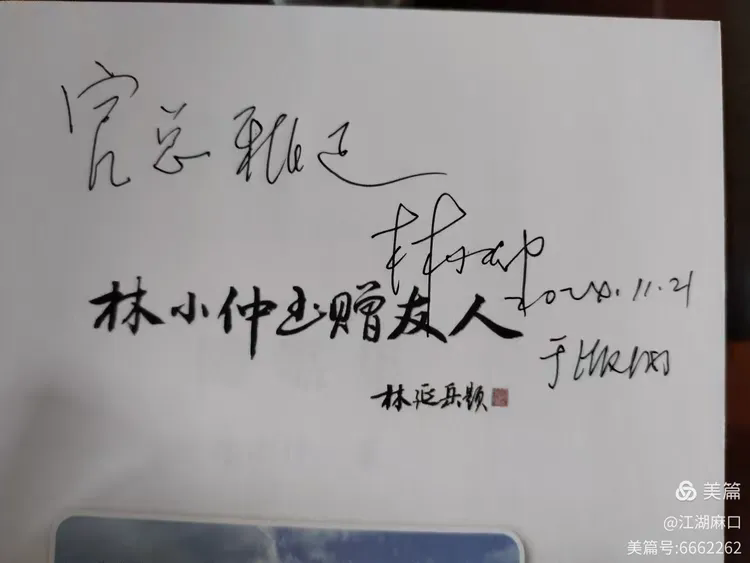 总雅正
林小仲
2024.11.21
于
林小仲书赠友人
林延岳题
美篇
@江湖麻口
美篇号:6662262